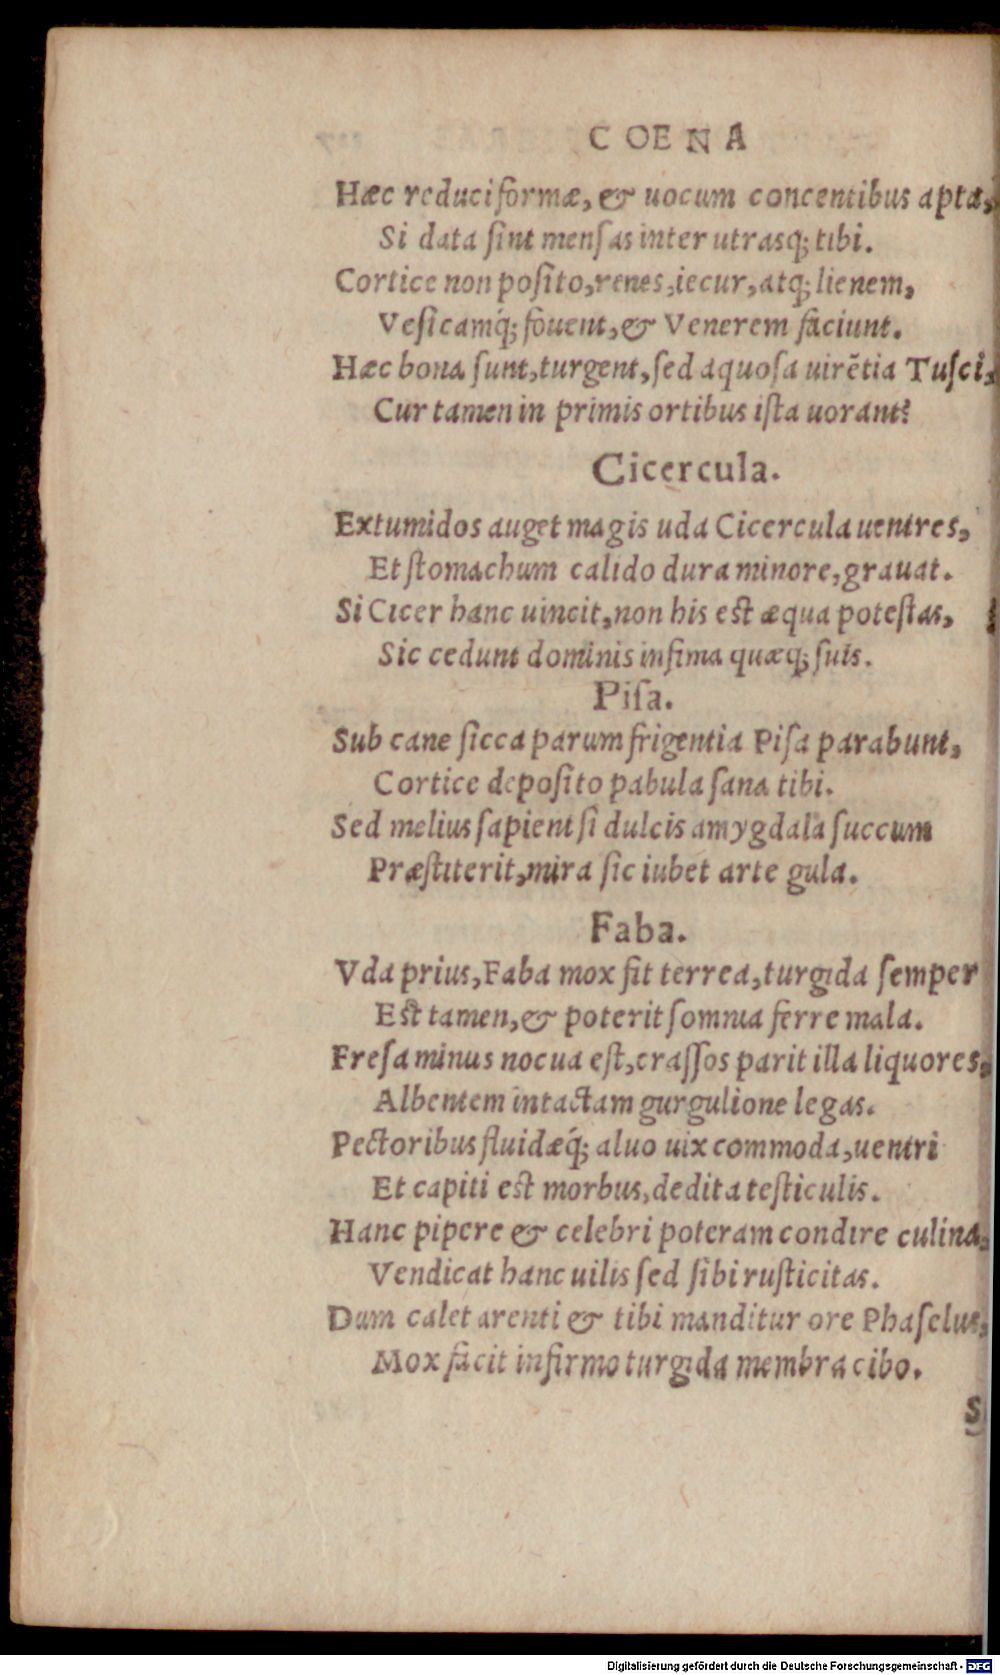 COENA
Hæc reduci formæ, & uocum concentibus apta,
Si data ſint menſas inter utrasq; tibi.
Cortice non poſito, renes, iecur, atq; lienem,
Veſicamq́; fouent, & Venerem faciunt.
Hæc bona ſunt, turgent, ſed aquoſa uirẽtia Tuſci,
Cur tamen in primis ortibus iſta uorant?
Cicercula.
Extumidos auget magis uda Cicercula uentres,
Et ſtomachum calido dura minore, grauat.
Si Cicer hanc uincit, non his eſt æqua poteſtas,
Sic cedunt dominis infima quæq; ſuis.
Piſa.
Sub cane ſicca parum frigentia Piſa parabunt,
Cortice depoſito pabula ſana tibi.
Sed melius ſapient ſi dulcis amygdala ſuccum
Præſtiterit, mira ſic iubet arte gula.
Faba.
Vda prius, Faba mox fit terrea, turgida ſemper
Eſt tamen, & poterit ſomnia ferre mala.
Freſa minus nocua eſt, craſſos parit illa liquores,
Albentem intactam gurgulione legas.
Pectoribus fluidæq́; aluo uix commoda, uentri
Et capiti eſt morbus, dedita teſticulis.
Hanc pipere & celebri poteram condire culina,
Vendicat hanc uilis ſed ſibi ruſticitas.
Dum calet arenti & tibi manditur ore Phaſelus,
Mox facit infirmo turgida membra cibo.
S
Digitalisierung gefördert durch die Deutsche Forschungsgemeinschaft - DFG